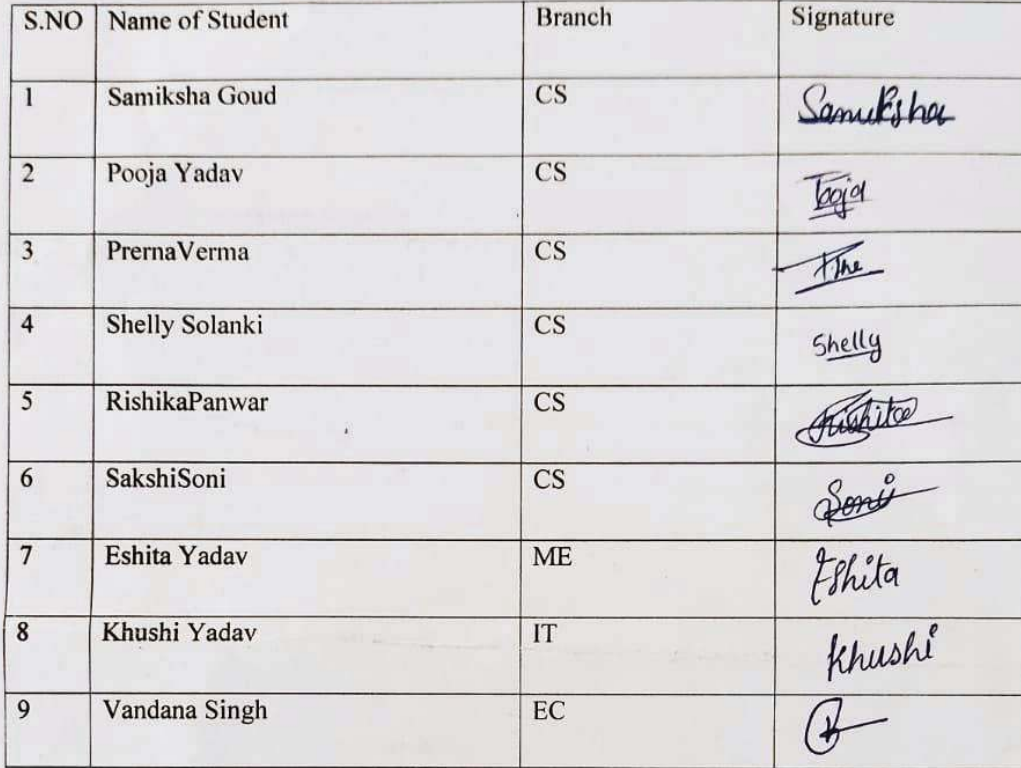 S.NO Name of Student Branch Signature
1 Samiksha Goud CS Samiksha
2 Pooja Yadav CS Pooja
3 PrernaVerma CS
4 Shelly Solanki CS Shelly
5 RishikaPanwar CS Rishika
6 SakshiSoni CS Soni
7 Eshita Yadav ME Eshita
8 Khushi Yadav IT Khushi
9 Vandana Singh EC